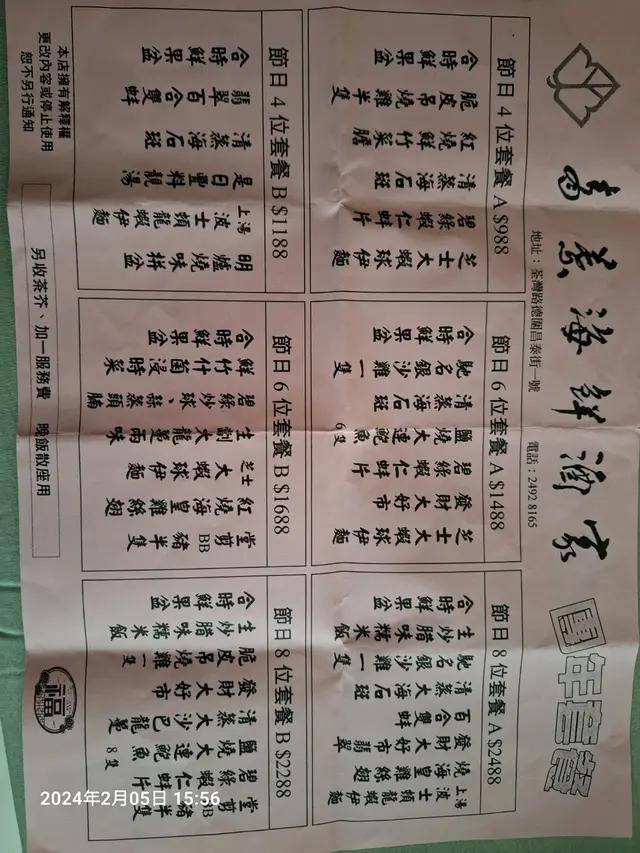 海鮮酒家
團年套餐
地址：荃灣路德圍昌泰街一號 電話：2492 8165
節日4位套餐 A $988
芝士大蝦球伊麵
碧綠蝦仁蚌片
清蒸海石斑
紅燒鮮竹菜膽
脆皮吊燒雞半隻
合時鮮果盆
節日6位套餐 A $1488
芝士大蝦球伊麵
發財大好市
碧綠蝦仁蚌片
鹽燒大連鮑魚6隻
清蒸海石斑
馳名銀沙雞一隻
合時鮮果盆
節日8位套餐 A $2488
上湯波士頓龍蝦伊麵
紅燒海皇雞絲翅
發財大好市
翡翠百合雙蚌
清蒸大海石斑
馳名銀沙雞一隻
生炒臘味糯米飯
合時鮮果盆
節日4位套餐 B $1188
明爐燒味拼盆
上湯波士頓龍蝦伊麵
是日豐料靚湯
清蒸海石斑
翡翠百合雙蚌
合時鮮果盆
節日6位套餐 B $1688
堂剪BB豬半隻
紅燒海皇雞絲翅
芝士大蝦球伊麵
生劏大龍躉兩味
碧綠炒球、蒜蒸頭腩
鮮什菌浸時菜
合時鮮果盆
節日8位套餐 B $2288
堂剪BB豬半隻
碧綠蝦仁蚌片
鹽燒大連鮑魚8隻
清蒸大沙巴龍躉
發財大好市
脆皮吊燒雞一隻
生炒臘味糯米飯
合時鮮果盆
本店擁有解釋權
更改內容或停止使用
恕不另行通知
另收茶芥、加一服務費 晚飯散座用
福
2024年2月05日 15:56